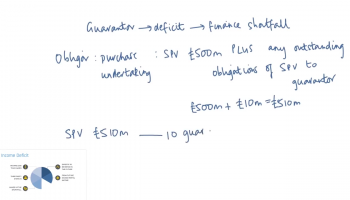 Guarantor → deficit → finance shortfall
Obligor : purchase undertaking : SPV £500m PLUS any outstanding obligations of SPV to guarantor
£500m + £10m = £510m
SPV £510m — 10 guar.
Income Deficit